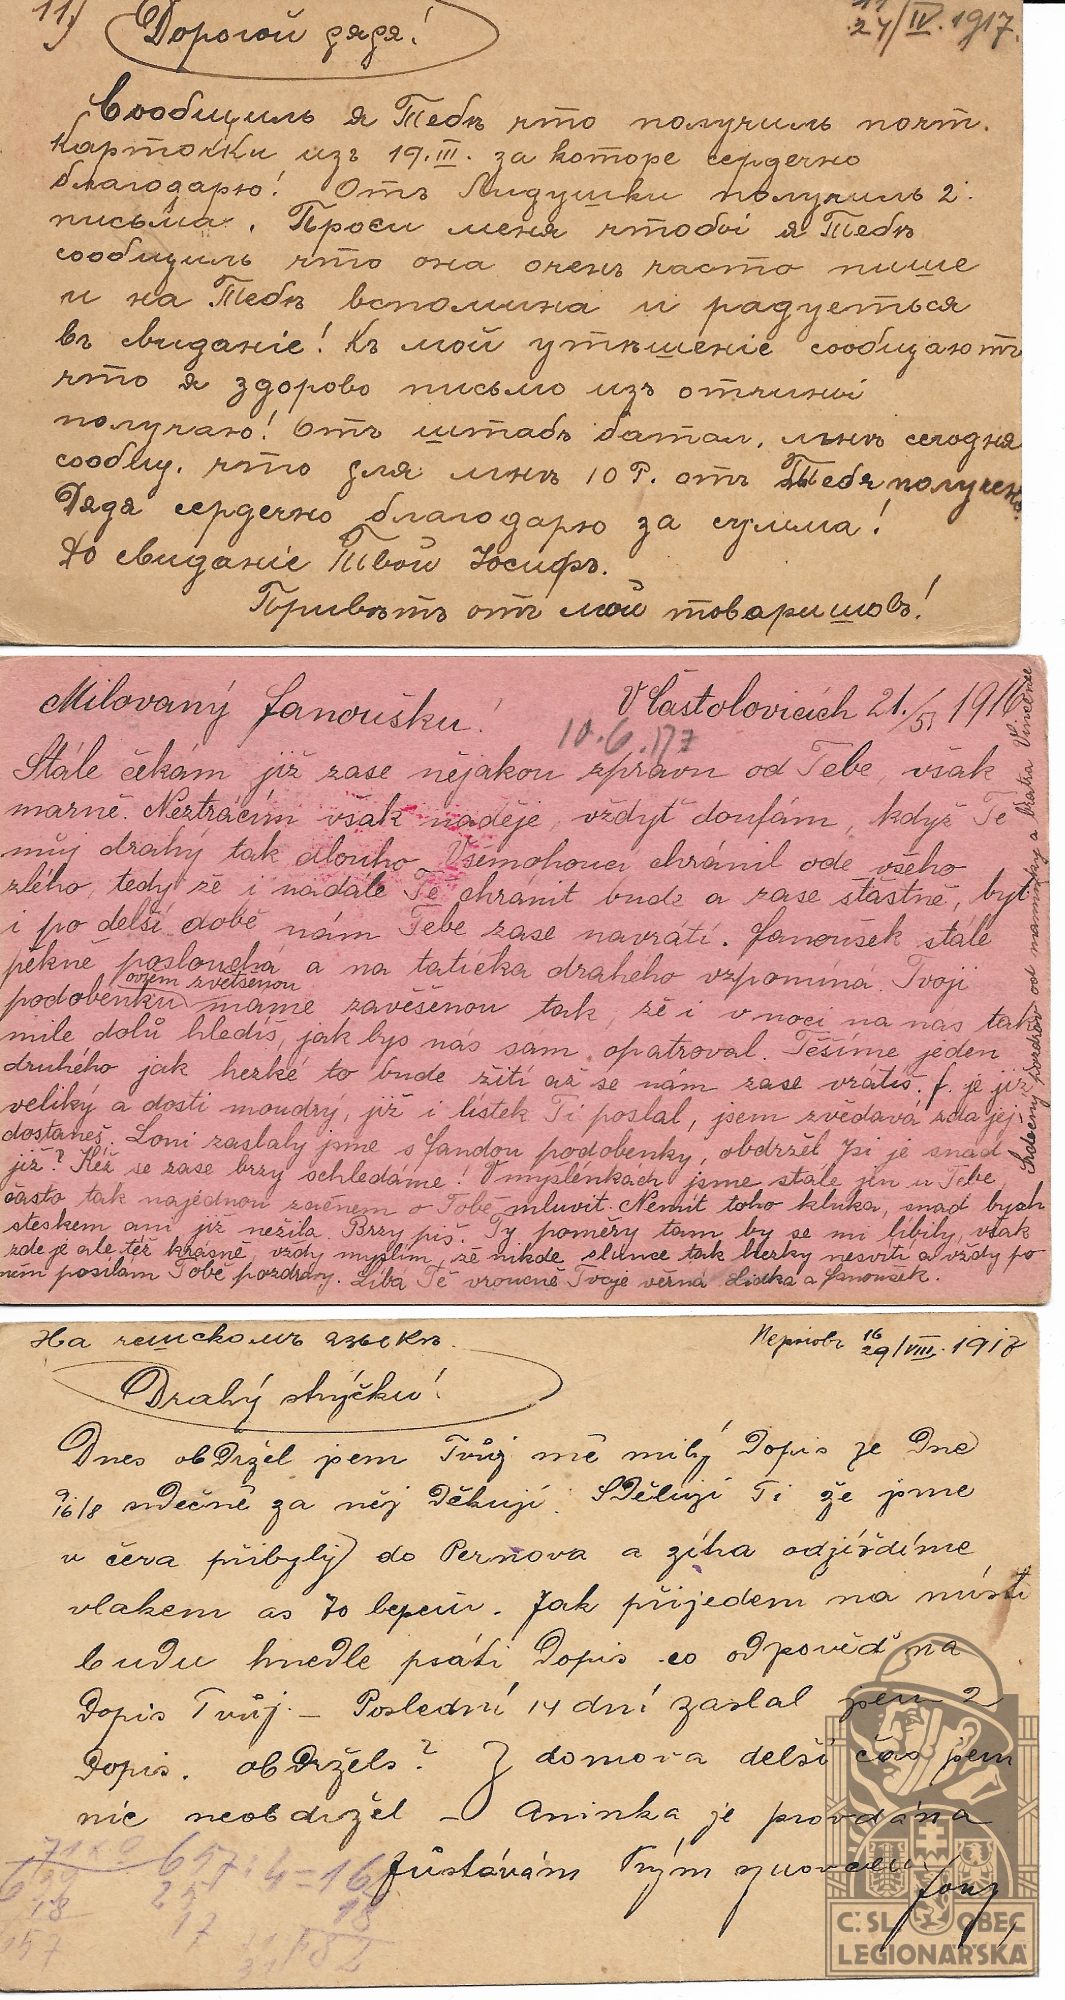 11)
Дорогой дядя!
11
24/IV. 1917.
Сообщиль я Тебѣ что получиль почт.
карточки изъ 19.III. за которе сердечно
благодарю! Отъ Лидушки получиль 2.
письма. Проси меня чтобы я Тебѣ
сообщиль что она очень часто пише
и на Тебѣ вспомина и радуеться
въ свиданіе! Къ мой утѣшеніе сообщаютъ
что я здорово письмо изъ отчины
получаю! Отъ штабъ батал. мнѣ сегодня
сообщ. что для мнѣ 10 Р. отъ Тебѣ получен.
Дядя сердечно благодарю за сумма!
До свиданіе Твой Іосифъ.
Привѣтъ отъ мой товаришовъ!
Milovaný Janoušku!
V Častolovicích 21./5. 1916
10.6.17
Stále čekám již zase nějakou zprávu od Tebe, však
marně. Neztrácím však naděje, vždyť doufám, když Tě
můj drahý tak dlouho Všemohoucí chránil ode všeho
zlého, tedy že i nadále Tě chránit bude a zase šťastně, byť
i po delší době nám Tebe zase navrátí. Janoušek stále
pěkně poslouchá a na tatíčka drahého vzpomíná. Tvoji
ovšem zvětšenou
podobenku máme zavěšenou tak, že i v noci na nás tak
mile dolů hledíš, jak bys nás sám opatroval. Těšíme jeden
druhého jak hezké to bude žití až se nám zase vrátíš. J. je již
veliký a dosti moudrý, již i lístek Ti poslal, jsem zvědavá zda jej
dostaneš. Loni zaslaly jsme s Jandou podobenky, obdržel jsi je snad
již? Kéž se zase brzy schledáme! V myšlénkách jsme stále jen u Tebe,
často tak najednou začnem o Tobě mluvit. Nemít toho kluka, snad bych
steskem ani již nežila. Brzy piš. Ty poměry tam by se mi líbily, však
zde je ale též krásně, vždy myslím, že nikde slunce tak hezky nesvítí a vždy po
něm posílám Tobě pozdravy. Líbá Tě vroucně Tvoje věrná Lidka a Janoušek.
Srdečný pozdrav od maminky a bratra Vincence
На чешскомъ языкѣ.
Перновъ 16/29/VIII. 1917
Drahý strýčku!
Dnes obdržel jsem Tvůj mě milý Dopis ze Dne
9/8 srdečně za něj Děkuji. Sděluji Ti že jsme
v čera přibyly do Pernova a zítra odjíždíme
vlakem as 70 verst. Jak přijedem na místě
budu hnedle psáti Dopis co odpověď na
Dopis Tvůj. — Poslední 14 dní zaslal jsem 2
Dopis. obdržels? Z domova delší čas jsem
nic neobdržel — Aninka je provdána
Zůstávám Tvým synovcem
657:4=16
25
17
18
57